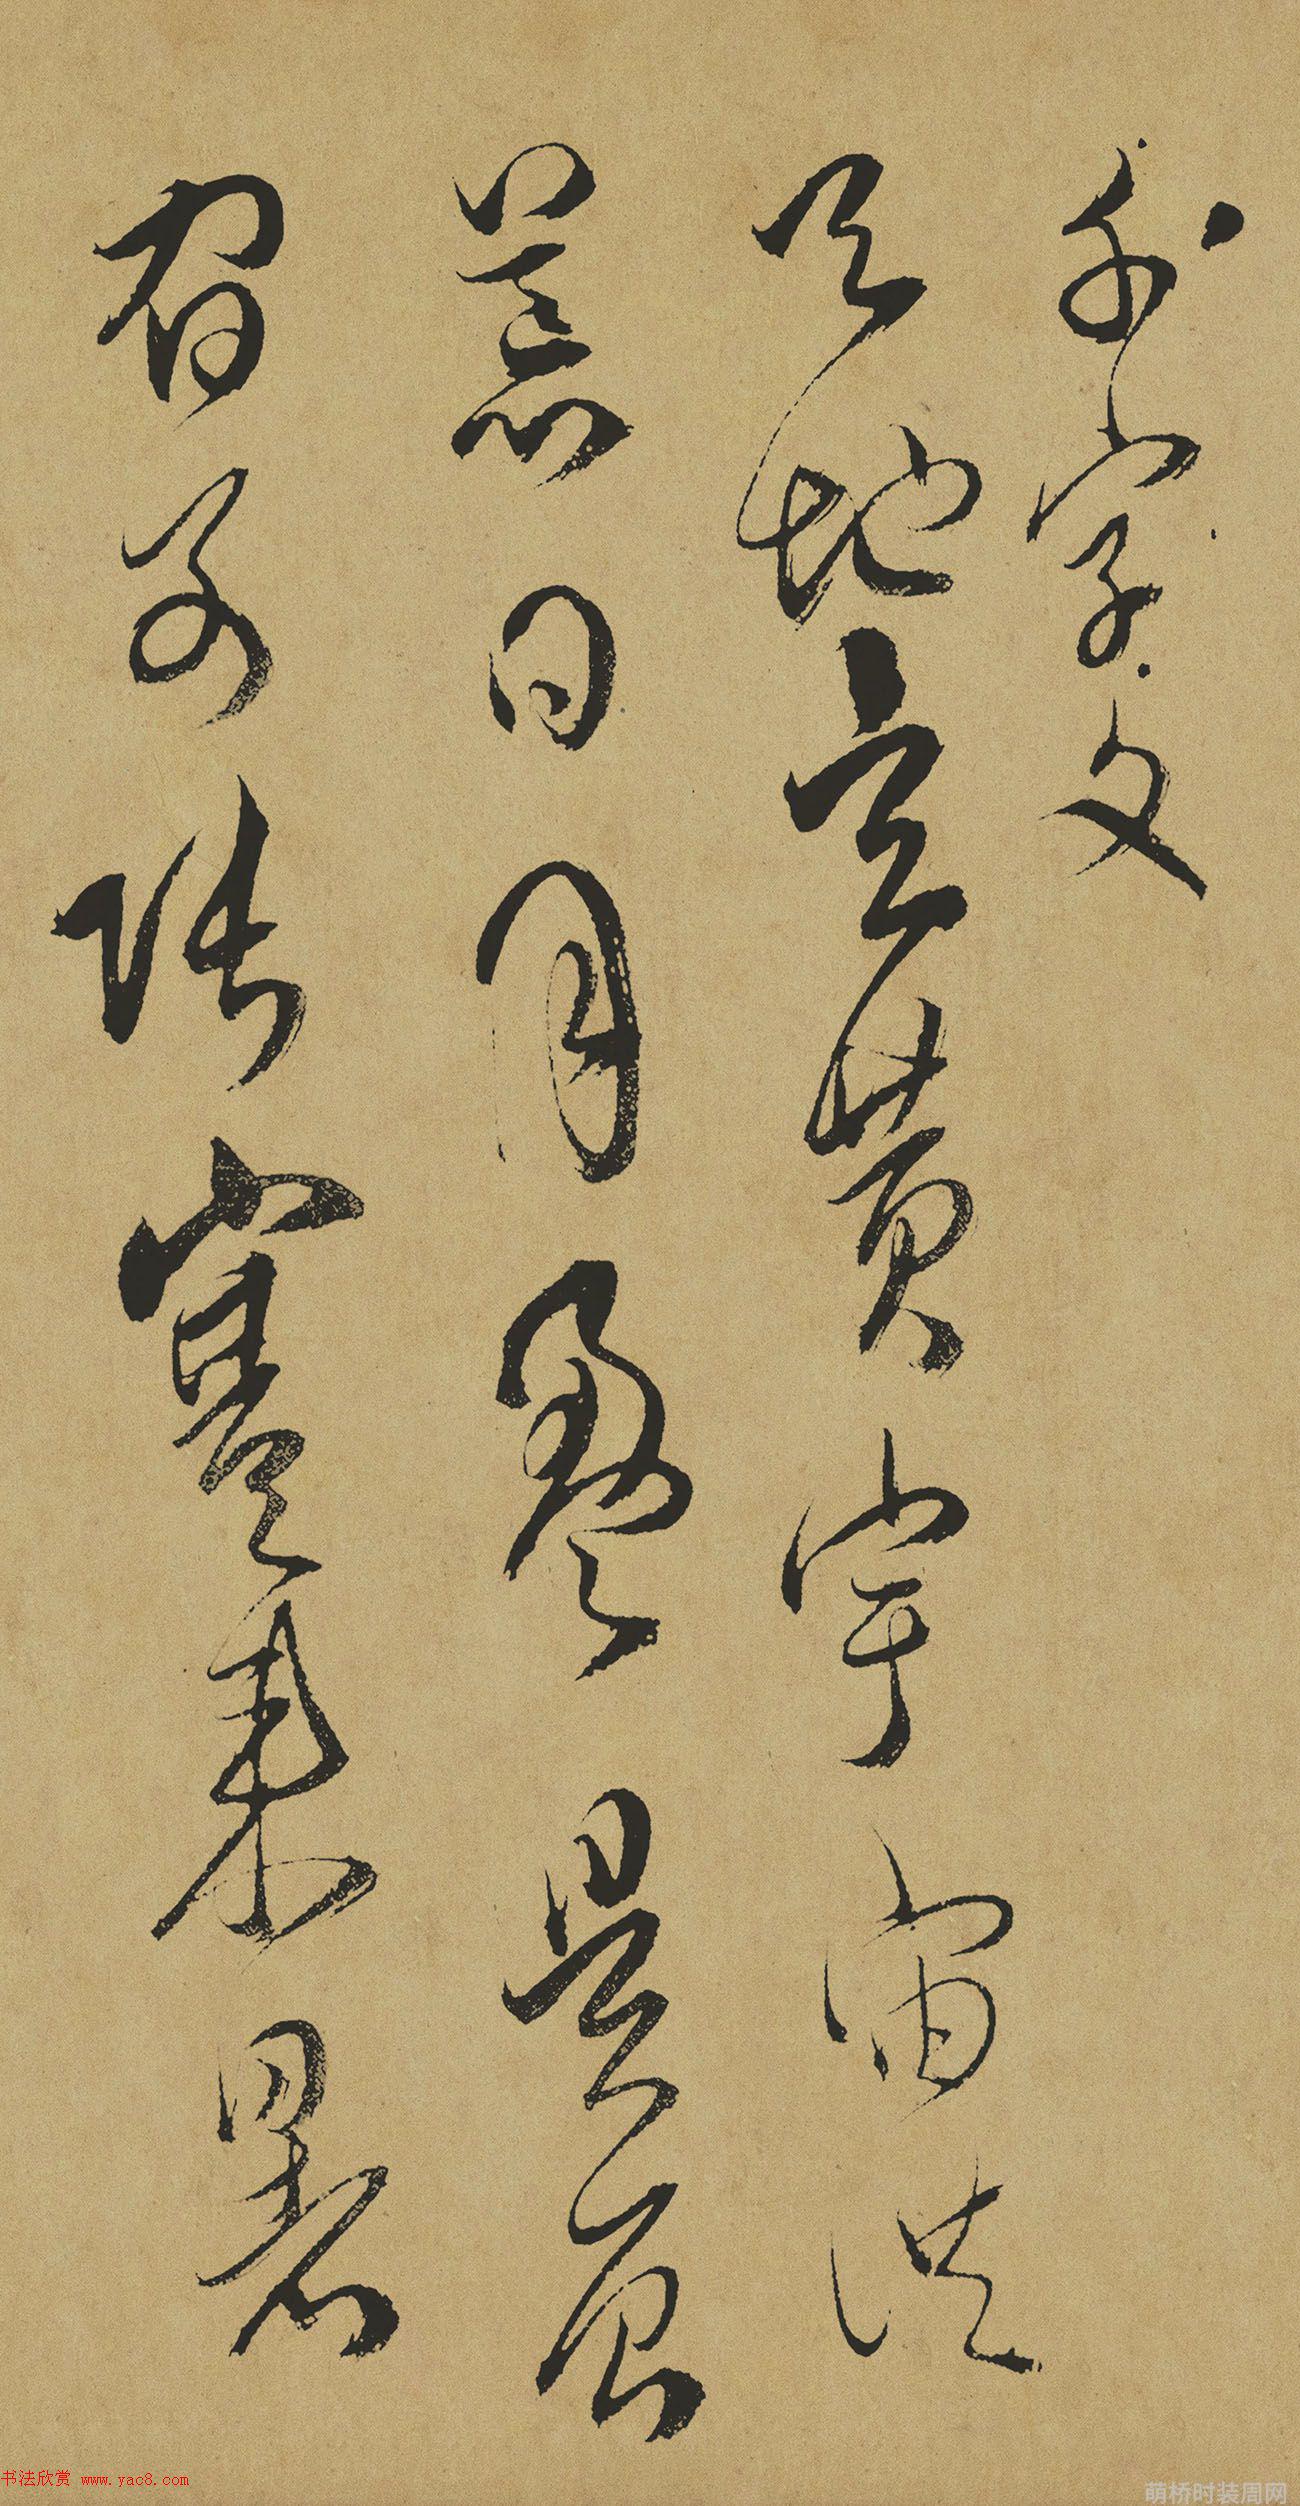 千字文
天地玄黄宇宙洪
荒日月盈昃辰
宿列张寒来暑
书法欣赏 www.yac8.com
萌桥时装周网